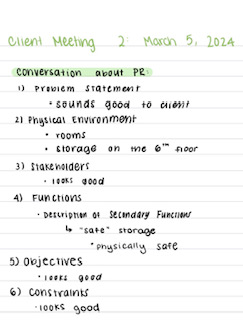 Client Meeting 2: March 5, 2024
Conversation about PR:
1) Problem Statement
• sounds good to client
2) Physical Environment
• rooms
• storage on the 6th floor
3) Stakeholders
• looks good
4) Functions
• Description of Secondary Functions
↳ "safe" storage
• physically safe
5) Objectives
• looks good
6) Constraints
• looks good